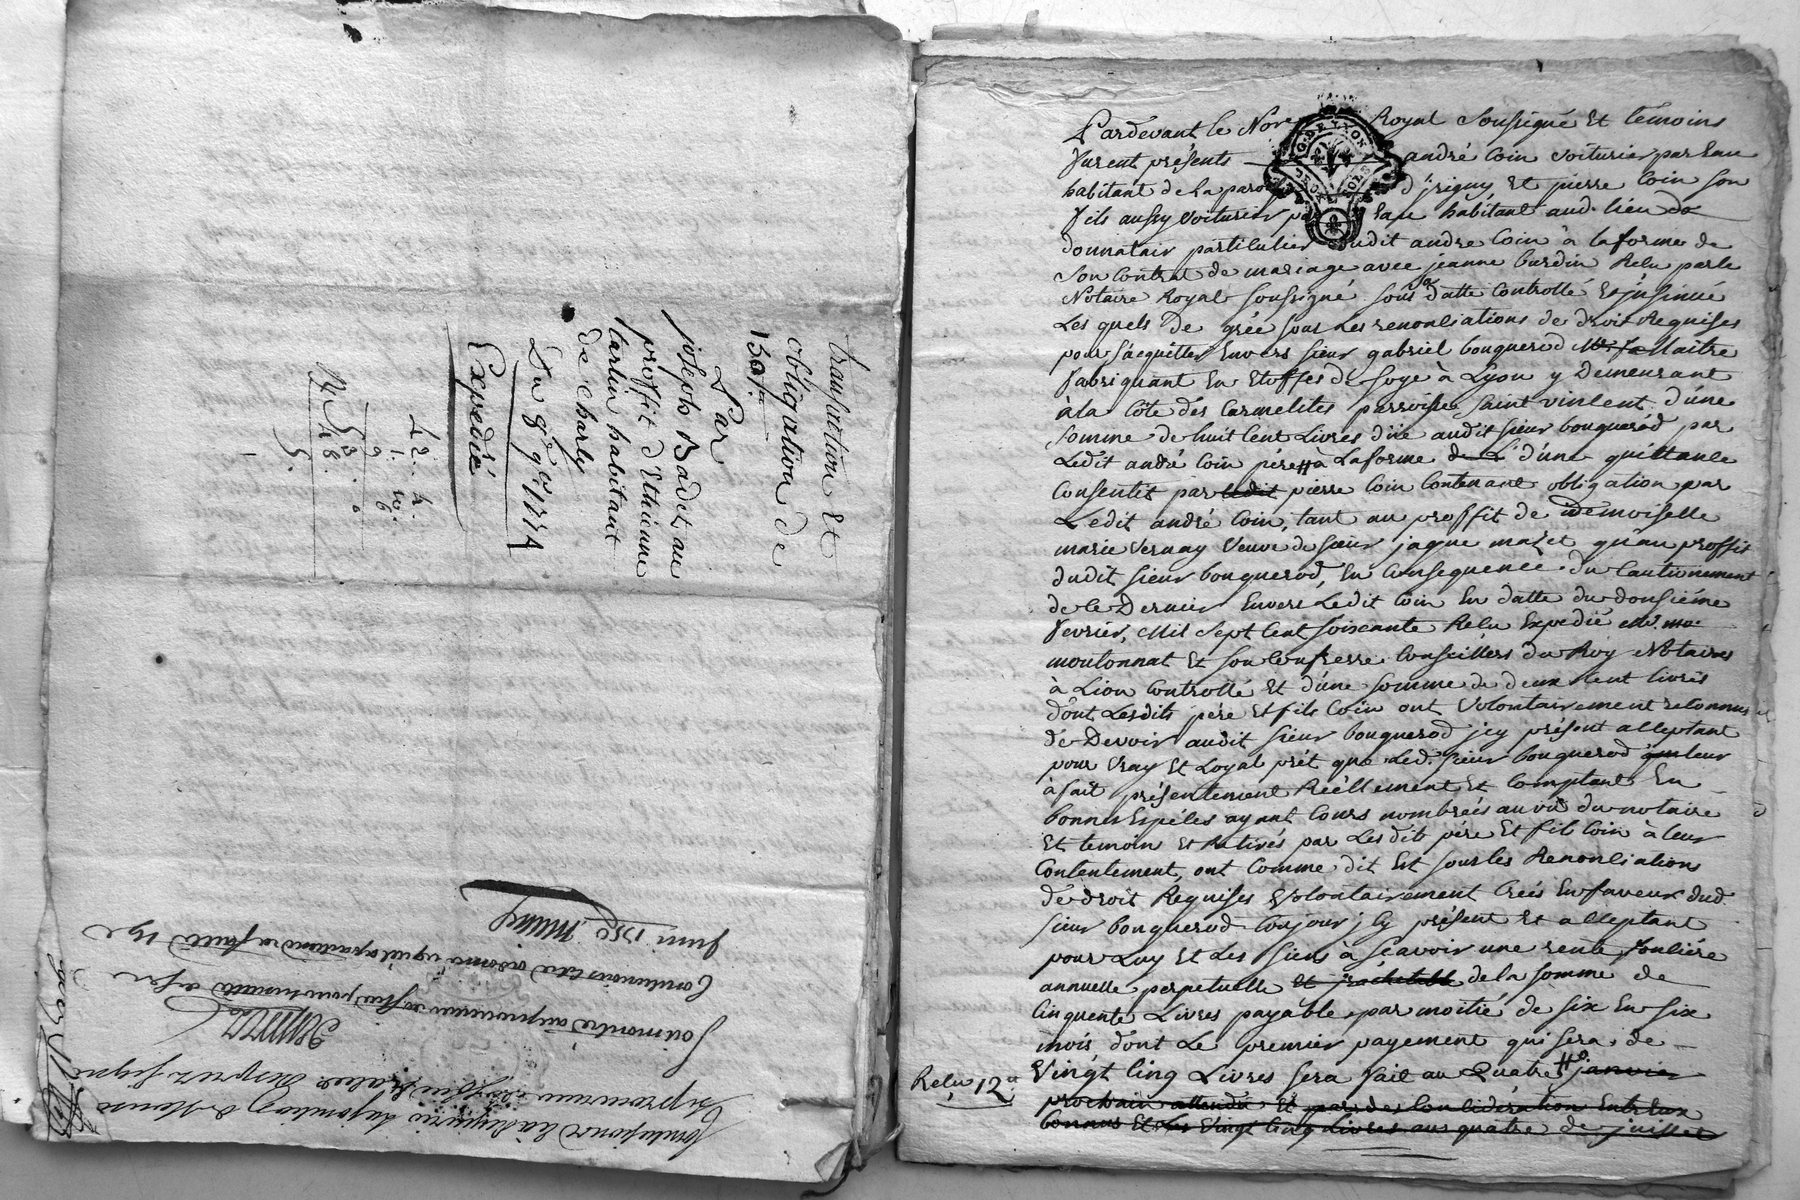 transaction Et
obligation de
150ᶠᵗ
Par
joseph Badet au
proffit d'Ethienne
tarlin habitant
de Charly
Du 8ᵉ 9ᵇʳᵉ 1774
Expedié
42. 4.
1. 10.
9 6
53.
48.
5.
juin 1750
Pardevant le Nore Royal Soussigné Et temoins
furent présents andré Coin voiturier par Eau
habitant de la paro d'jrigny Et pierre Coin son
fils aussy voiturier par Eau habitant aud. lieu
donnatair particulier dudit andre Coin à la forme de
son contrat de mariage avec jeanne burdin Relu par le
Notaire Royal soussigné sous sa datte Controllé Et jnsinué
Les quels de grée sous Les renonciations de droit Requises
pour s'acquitter Envers sieur gabriel bouquerod Maitre
fabriquant En Etoffes de soye à Lyon y Demeurant
à la Côte des Carmelites parroisse saint vincent d'une
somme de huit Cent Livres düe audit sieur bouquerod par
Ledit andré Coin pére # à La forme de L d'une quittance
Consentit par ledit pierre Coin Contenant obligation par
Ledit andré Coin, tant au proffit de demoiselle
marie vernay veuve de sieur jaque mazet qu'au proffit
dudit sieur bouquerod, En Consequence du Cautionement
de Ce Dernier Envers Ledit Coin En datte du dousiéme
fevrier, Mil sept Cent soixante Relu Expedié
moutonnat Et son Confrerre Conseillers du Roy Notaires
à Lion Controllé Et d'une somme de deux Cent livres
dont Lesdits pére Et fils Coin ont volontairement reconnus
de Devoir audit sieur bouquerod jcy présent acceptant
pour vray Et Loyal prét que Led. sieur bouquerod leur
à fait présentement Réellement Et Comptant En
bonnes Espéces ayant Cours nombreés au vû du notaire
Et temoin Et Retirés par Les dits pére Et fils Coin à leur
Contentement, ont Comme dit Est sous les Renonciations
de droit Requises volontairement Creés En faveur dud
sieur bouquerod toujour jcy présent Et acceptant
pour Luy Et Les siens à sçavoir une rente fonciére
annuelle perpetuelle Et rachetable de la somme de
Cinquente Livres payable, par moitié de six En six
mois dont Le premier payement qui sera de
Vingt Cinq Livres sera fait au Quatre # janvier
prochain attendu Et par des Considération Entre Eux
bonnus Et Les vingt Cinq Livres au quatre de juillet
Relu, 12
G. DE LYON